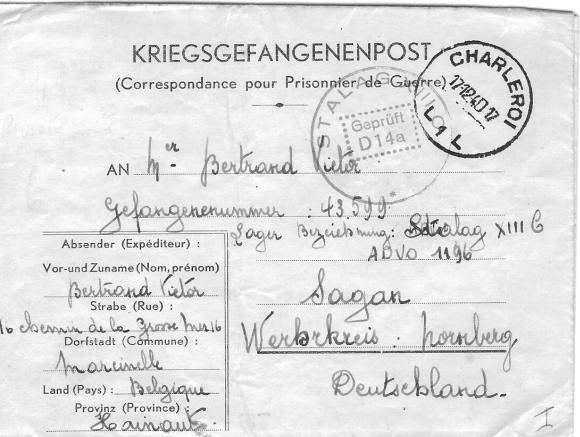 KRIEGSGEFANGENENPOST
(Correspondance pour Prisonnier de Guerre)
CHARLEROI
17 12 40 17
L 1 L
STALAG
Geprüft
D14a
AN Mer Bertrand Victor
Gefangenenummer : 43.599
Lager Bezeichnung: Stalag XIII C
ADVO 1196
Sagan
Werkrkreis : Nornberg
Deutschland.
Absender (Expéditeur) :
Vor-und Zuname (Nom, prénom)
Bertrand Victor
Strabe (Rue) :
16 chemin de la Grosse 16
Dorfstadt (Commune) :
Marcinelle
Land (Pays) : Belgique
Provinz (Province) :
Hainaut
I